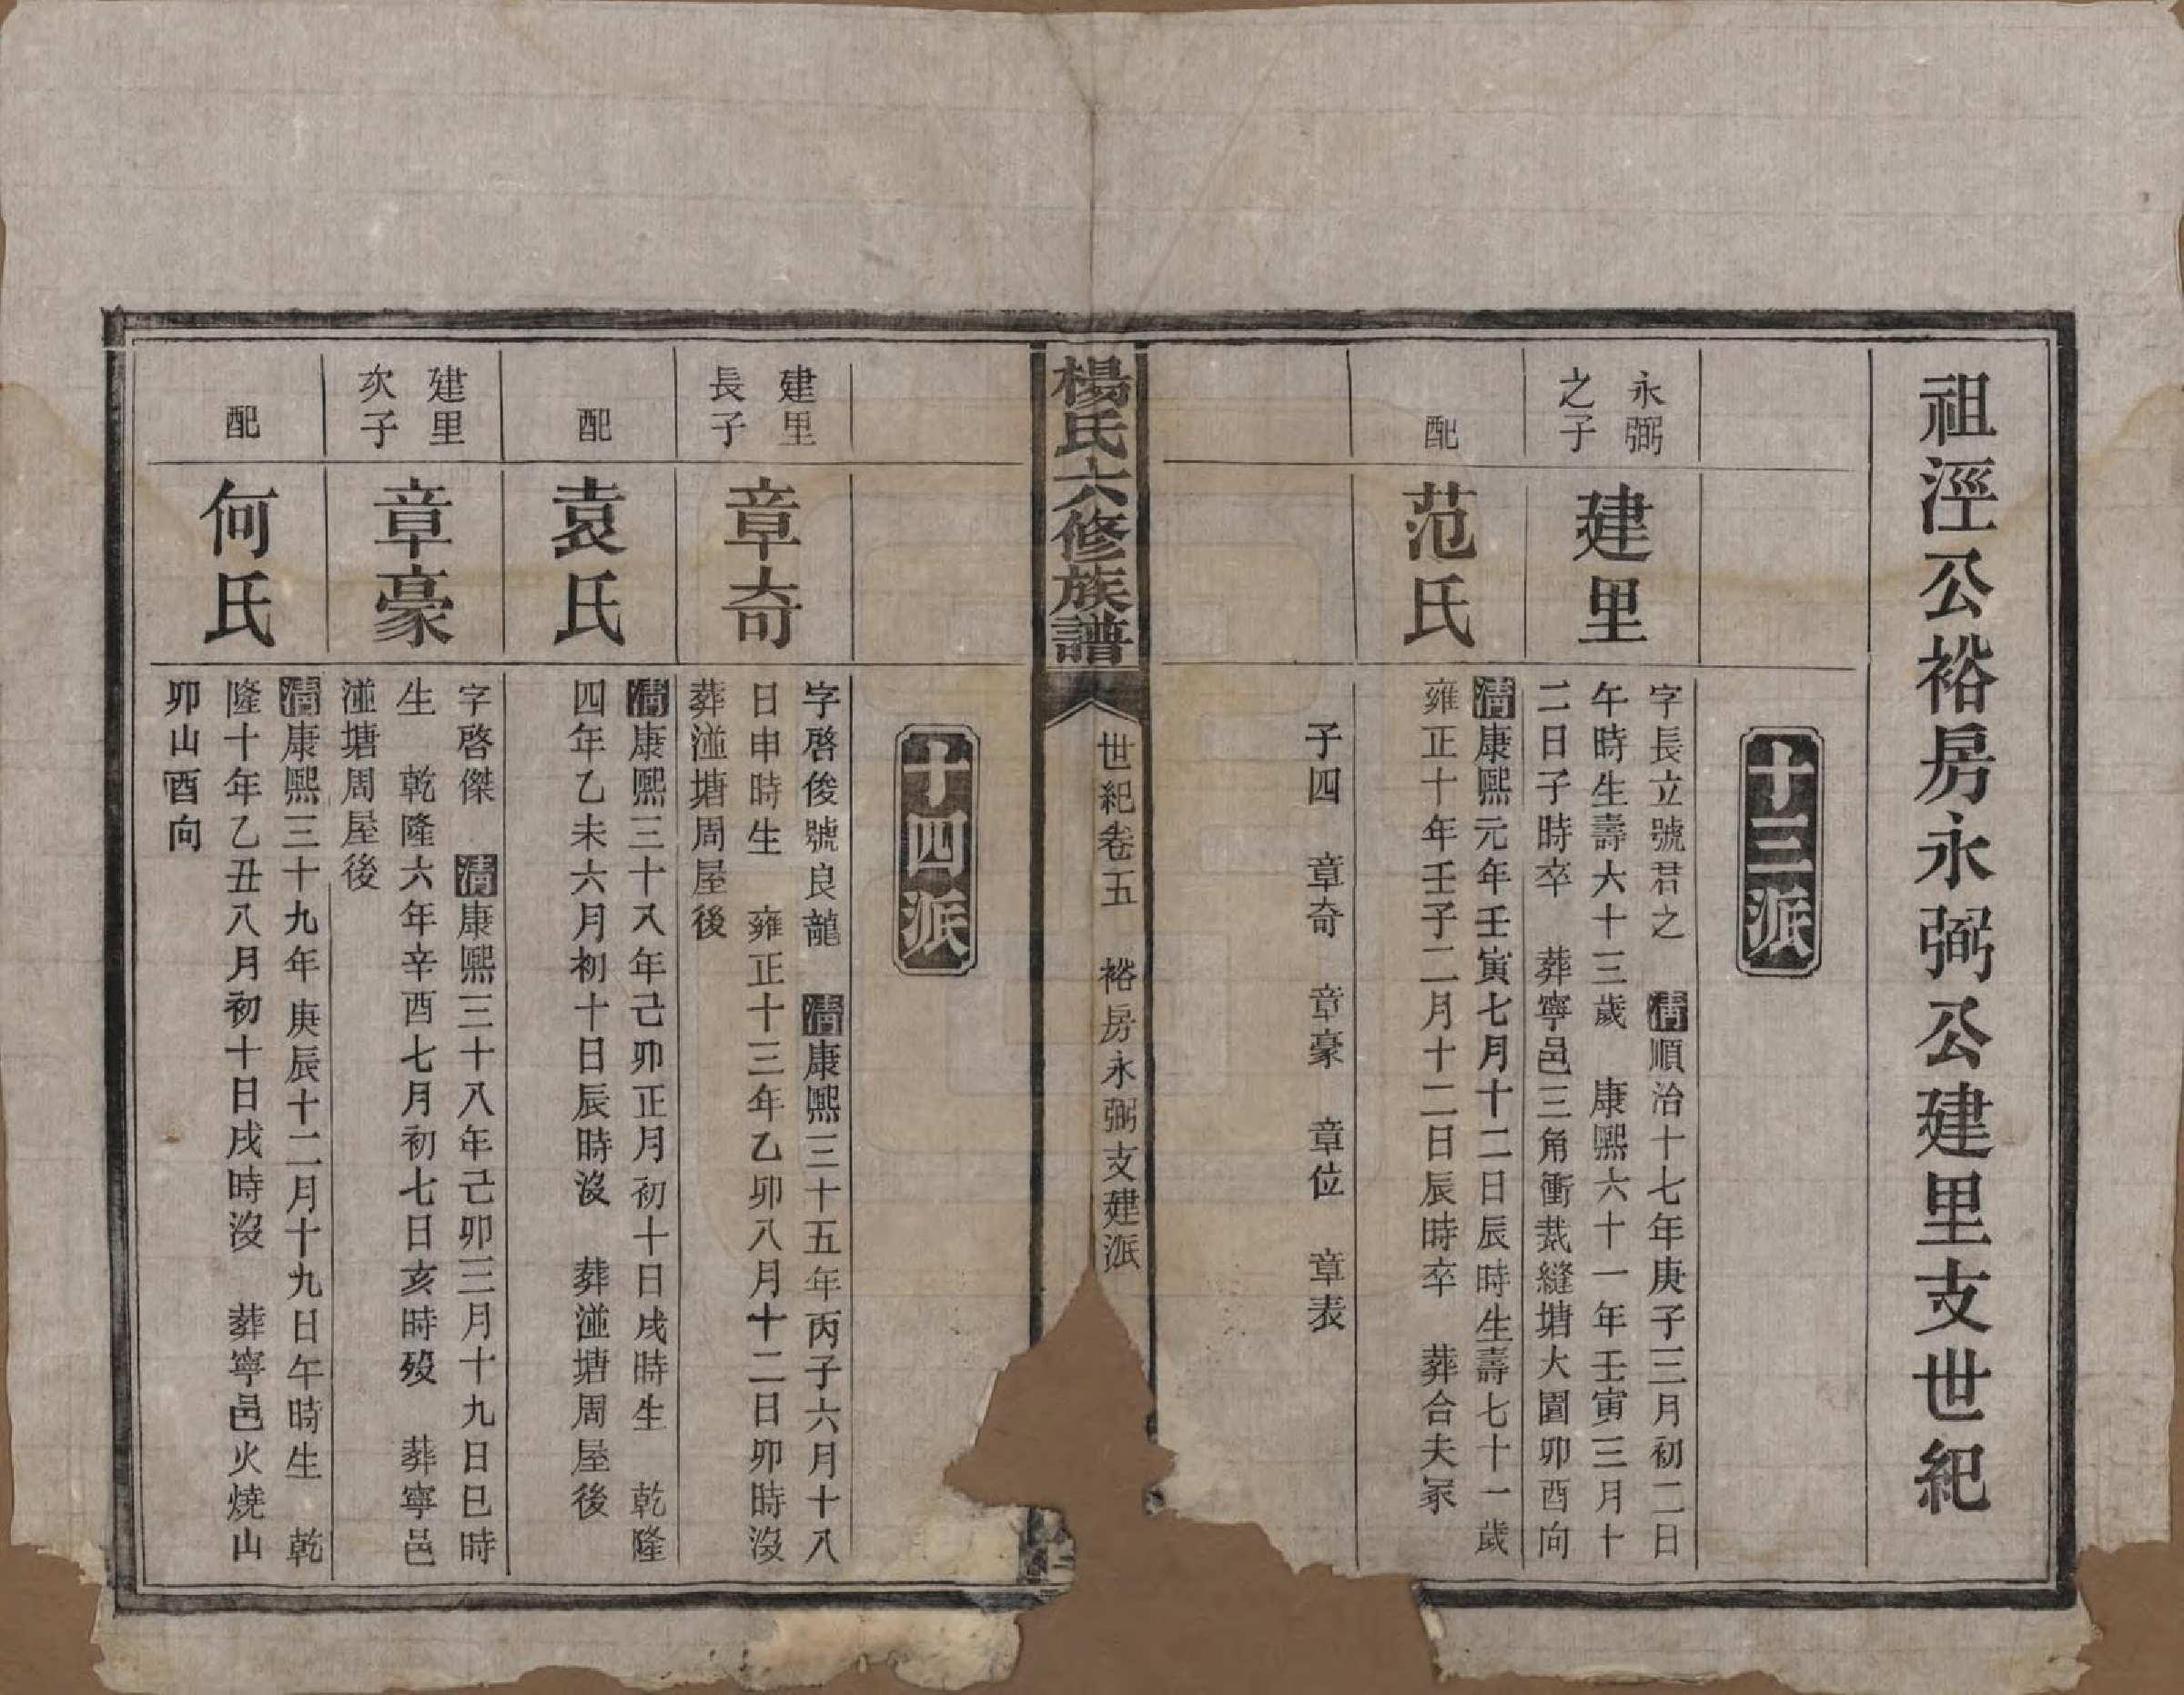 祖涇公裕房永弼公建里支世紀
十三派
永弼
之子
建里
字長立號君之　清順治十七年庚子三月初二日
午時生壽六十三歲　康熙六十一年壬寅三月十
二日子時卒　葬寧邑三角衝䘺縫塘大園卯酉向
配
范氏
清康熙元年壬寅七月十二日辰時生壽七十一歲
雍正十年壬子二月十二日辰時卒　葬合夫冢
子四　章奇　章豪　章位　章表
楊氏六修族譜
世紀卷五　裕房永弼支建派
十四派
建里
長子
章奇
字啓俊號良龍　清康熙三十五年丙子六月十八
日申時生　雍正十三年乙卯八月十二日卯時沒
葬湴塘周屋後
配
袁氏
清康熙三十八年己卯正月初十日戌時生　乾隆
四年乙未六月初十日辰時沒　葬湴塘周屋後
建里
次子
章豪
字啓傑　清康熙三十八年己卯三月十九日巳時
生　乾隆六年辛酉七月初七日亥時歿　葬寧邑
湴塘周屋後
配
何氏
清康熙三十九年庚辰十二月十九日午時生　乾
隆十年乙丑八月初十日戌時沒　葬寧邑火燒山
卯山酉向